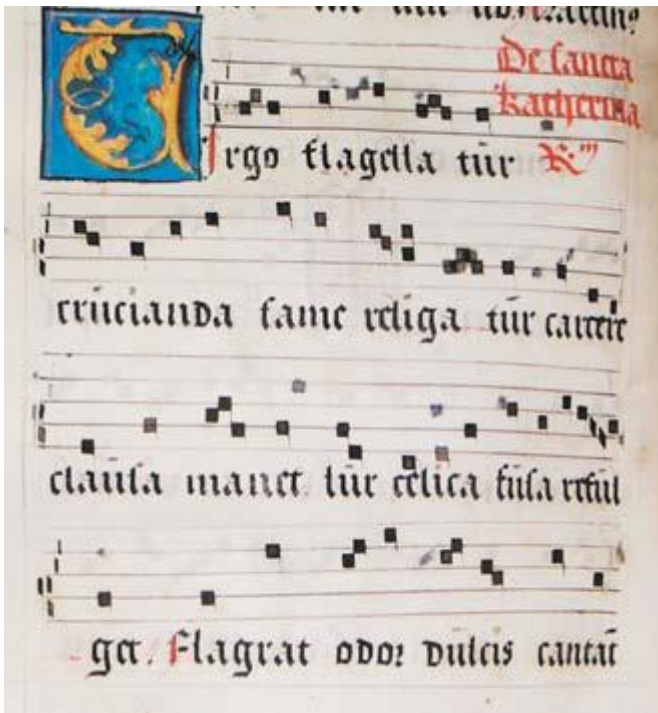 De sancta
Katherina
Virgo flagellatur R
crucianda fame religatur carcere
clausa manet lux celica fusa reful
get. Flagrat odor dulcis cantāt